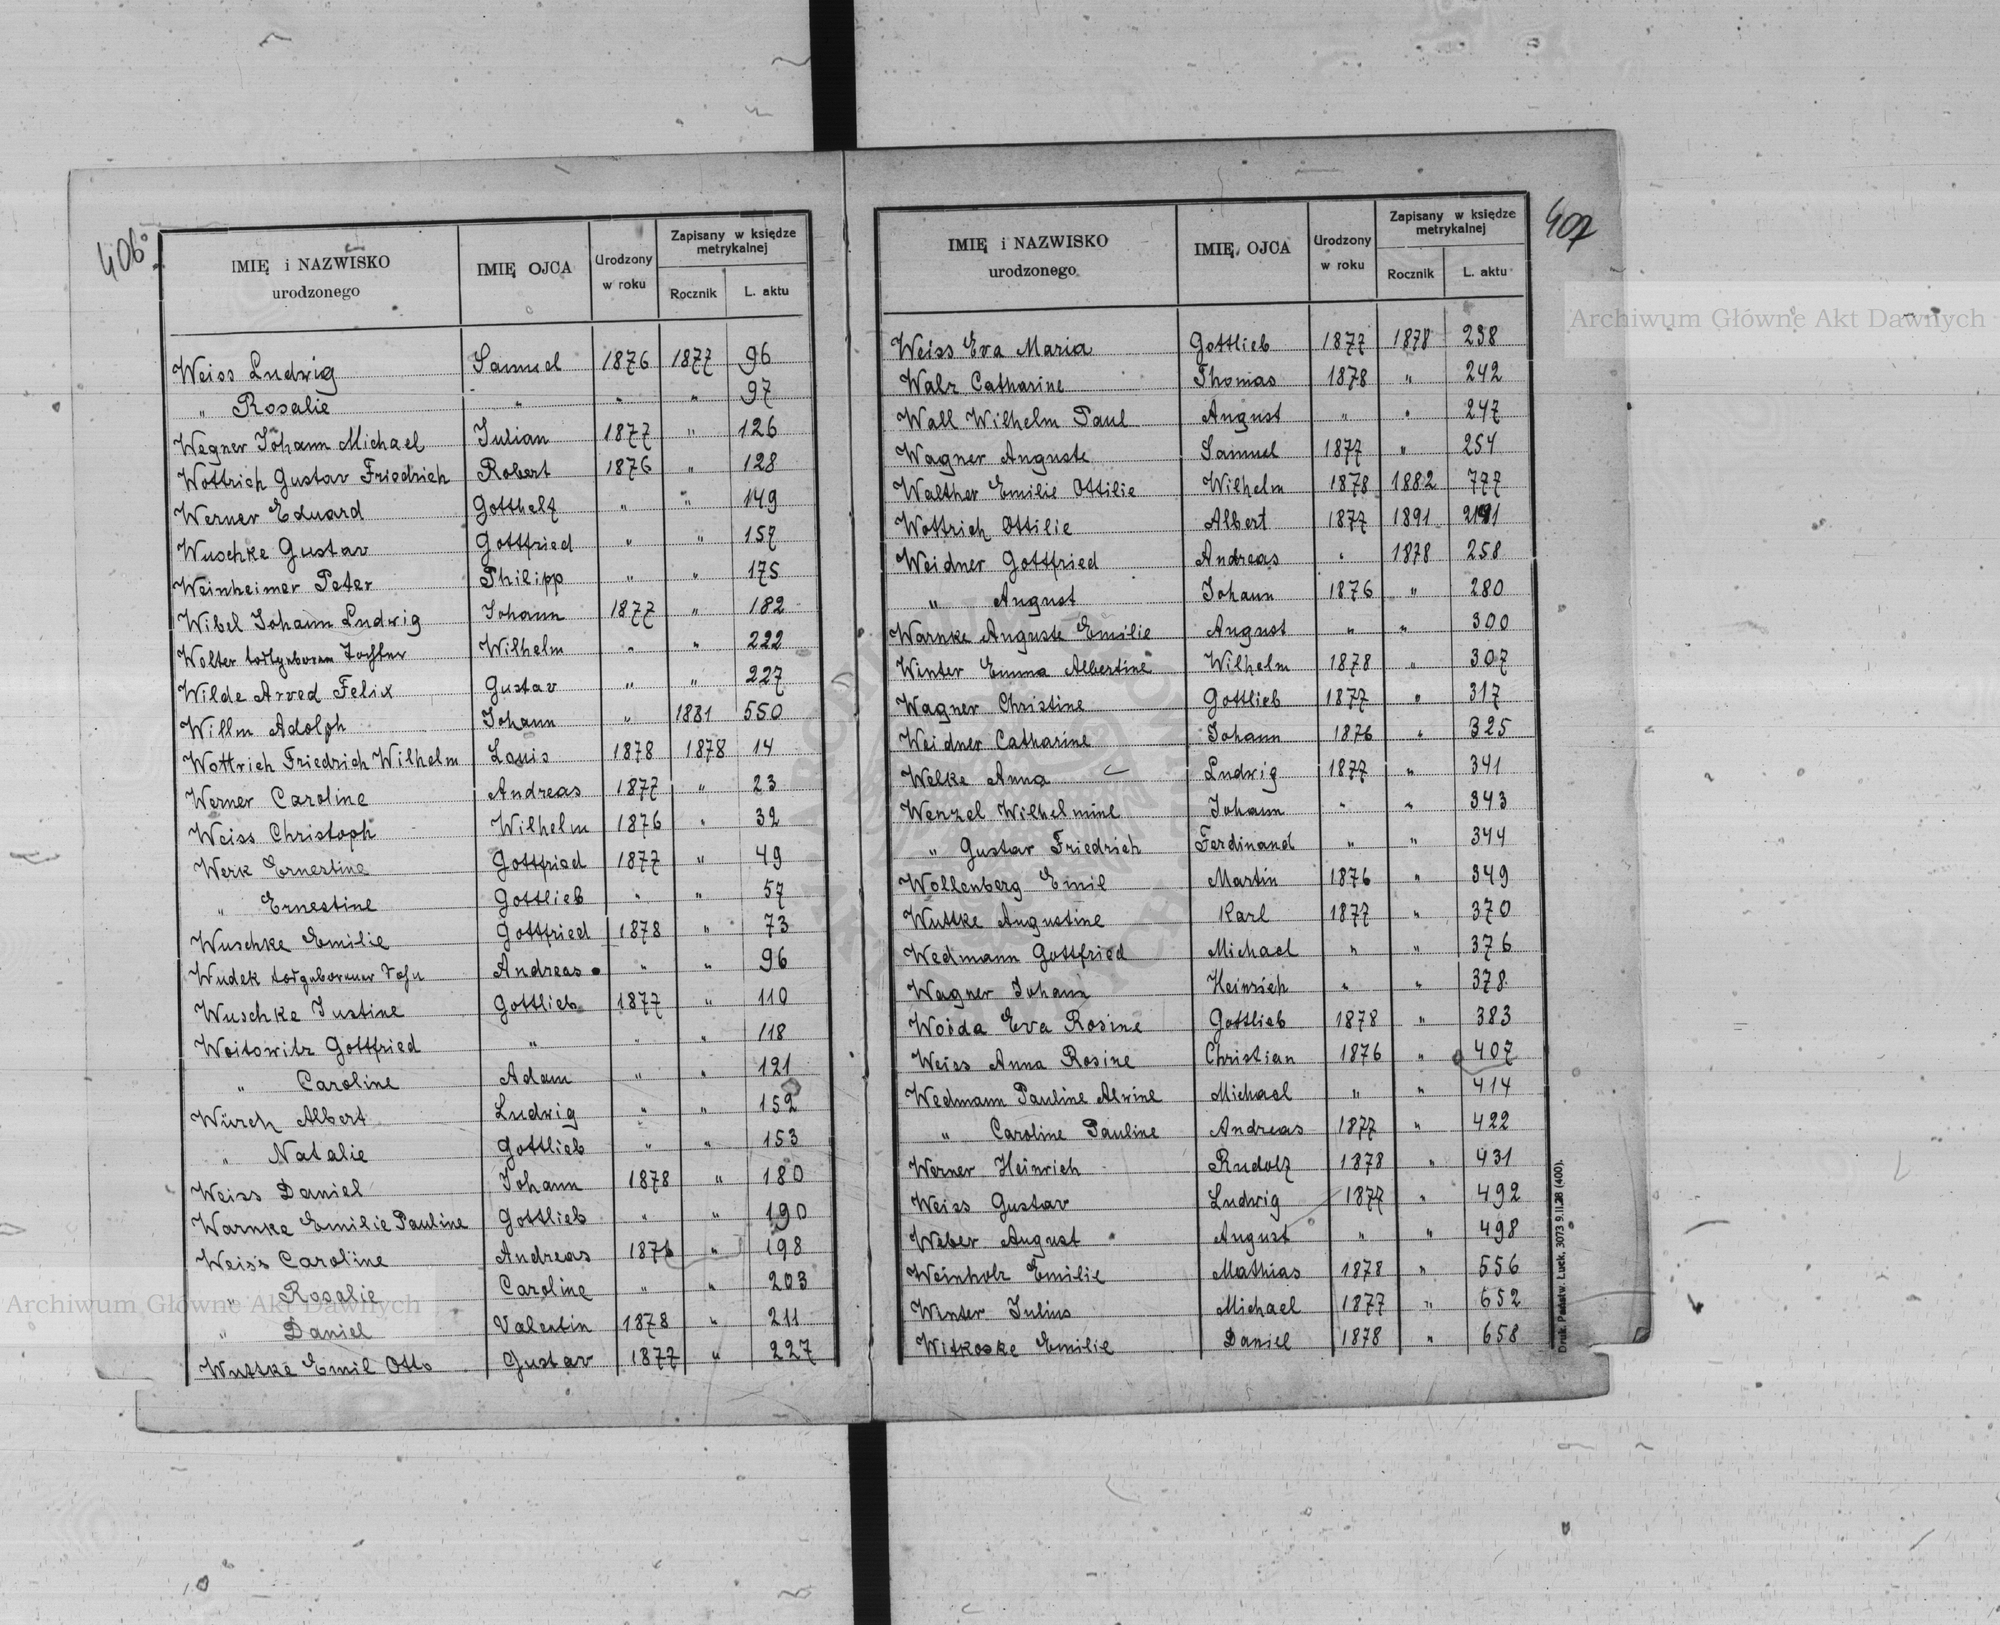 406
IMIĘ i NAZWISKO urodzonego IMIĘ OJCA Urodzony w roku Zapisany w księdze metrykalnej Rocznik L. aktu
Weiss Ludwig Samuel 1876 1877 96
" Rosalie " " " 97
Wegner Johann Michael Julian 1877 " 126
Wottrich Gustav Friedrich Robert 1876 " 128
Werner Eduard Gotthelf " " 149
Wuschke Gustav Gottfried " " 157
Weinheimer Peter Philipp " " 175
Wibel Johann Ludwig Johann 1877 " 182
Wolter totgeborene Tochter Wilhelm " " 222
Wilde Arved Felix Gustav " " 227
Willm Adolph Johann " 1881 550
Wottrich Friedrich Wilhelm Louis 1878 1878 14
Werner Caroline Andreas 1877 " 23
Weiss Christoph Wilhelm 1876 " 32
Werk Ernestine Gottfried 1877 " 49
" Ernestine Gottlieb " " 57
Wuschke Emilie Gottfried 1878 " 73
Wudek totgeborener Sohn Andreas " " 96
Wuschke Justine Gottlieb 1877 " 110
Woitowitz Gottfried " " " 118
" Caroline Adam " " 121
Würch Albert Ludwig " " 152
" Natalie Gottlieb " " 153
Weiss Daniel Johann 1878 " 180
Warnke Emilie Pauline Gottlieb " " 190
Weiss Caroline Andreas 1876 " 198
" Rosalie Caroline " " 203
" Daniel Valentin 1878 " 211
Wuttke Emil Otto Gustav 1877 " 227
407
IMIĘ i NAZWISKO urodzonego IMIĘ OJCA Urodzony w roku Zapisany w księdze metrykalnej Rocznik L. aktu
Weiss Eva Maria Gottlieb 1877 1878 238
Walz Catharine Thomas 1878 " 242
Wall Wilhelm Paul August " " 247
Wagner Auguste Samuel 1877 " 254
Walther Emilie Ottilie Wilhelm 1878 1882 777
Wottrich Ottilie Albert 1877 1891
Weidner Gottfried Andreas " 1878 258
" August Johann 1876 " 280
Warnke Auguste Emilie August " " 300
Winter Emma Albertine Wilhelm 1878 " 307
Wagner Christine Gottlieb 1877 " 317
Weidner Catharine Johann 1876 " 325
Welke Anna Ludwig 1877 " 341
Wenzel Wilhelmine Johann " " 343
" Gustav Friedrich Ferdinand " " 344
Wollenberg Emil Martin 1876 " 349
Wuttke Augustine Karl 1877 " 370
Wedmann Gottfried Michael " " 376
Wagner Johann Heinrich " " 378
Woida Eva Rosine Gottlieb 1878 " 383
Weiss Anna Rosine Christian 1876 " 407
Wedmann Pauline Alwine Michael " " 414
" Caroline Pauline Andreas 1877 " 422
Werner Heinrich Rudolf 1878 " 431
Weiss Gustav Ludwig 1877 " 492
Weber August August " " 498
Weinholz Emilie Mathias 1878 " 556
Winter Julius Michael 1877 " 652
Witkoske Emilie Daniel 1878 " 658
Druk. Państw. Łuck. 3073 9.II.28 (400).
Archiwum Główne Akt Dawnych
Archiwum Główne Akt Dawnych